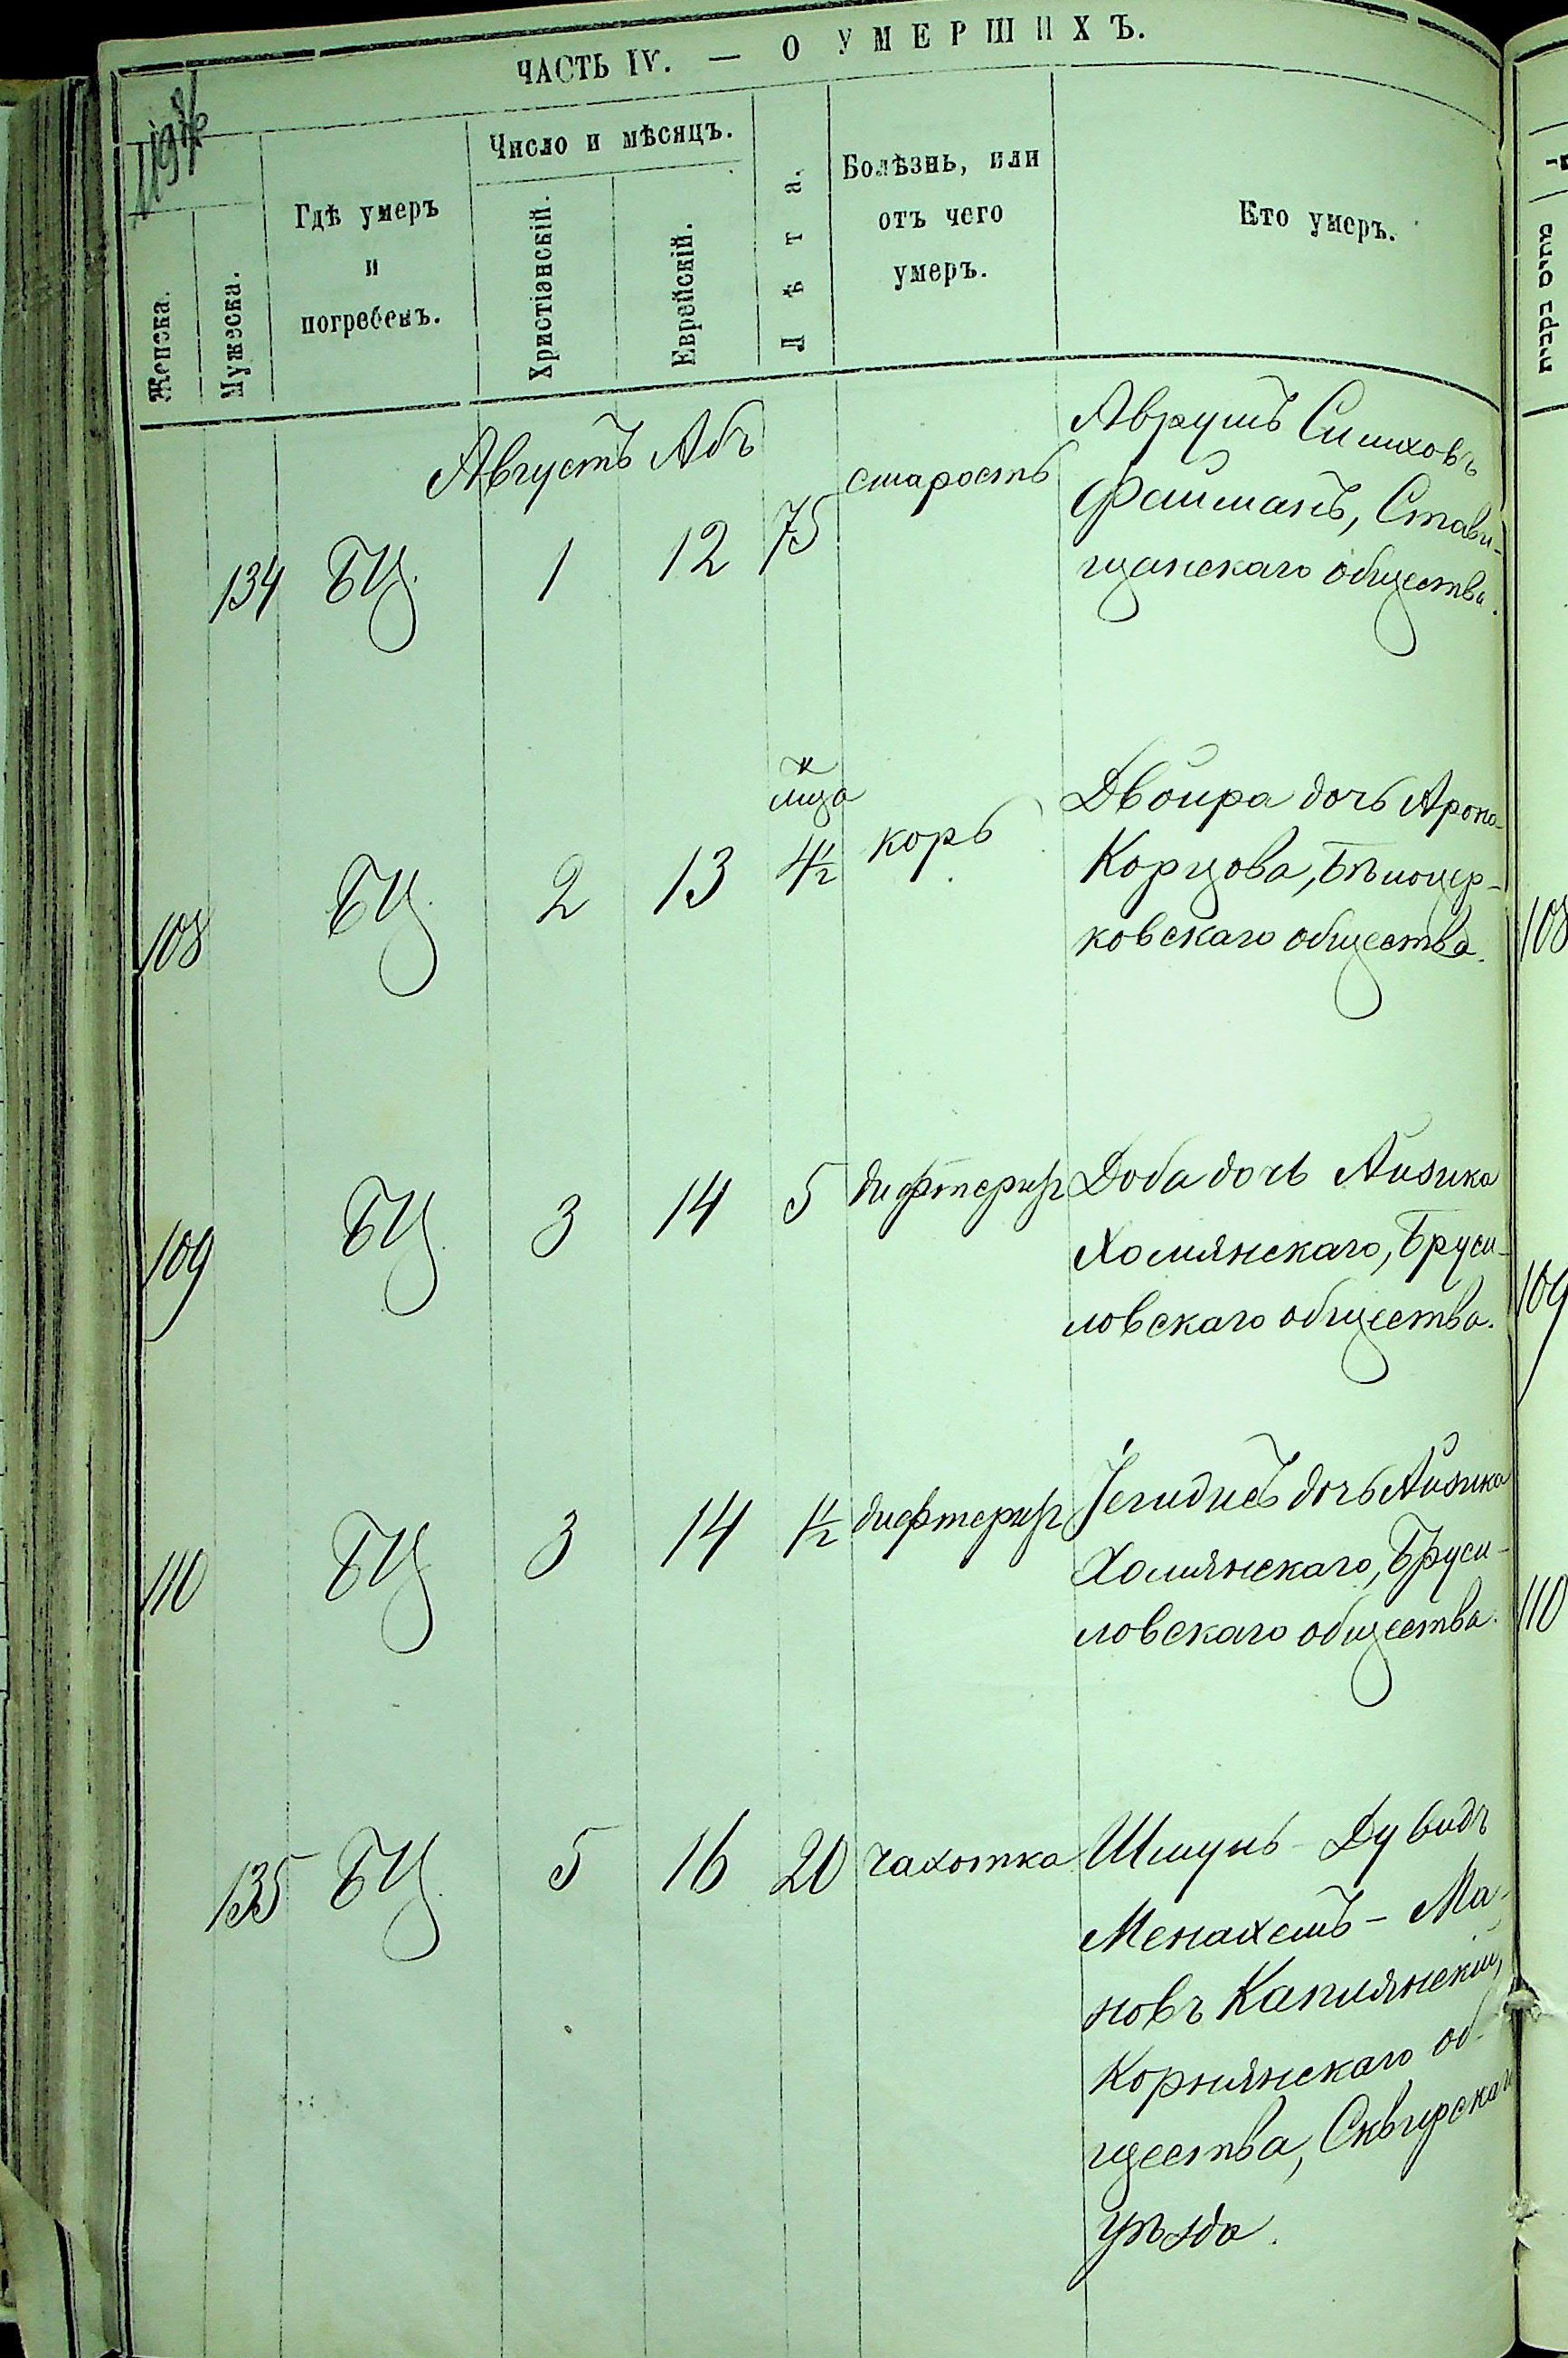 ЧАСТЬ IV. — О УМЕРШИХЪ.
Женска.
Мужеска.
Гдѣ умеръ
и
погребенъ.
Число и мѣсяцъ.
Христіанскій.
Еврейскій.
Лѣта.
Болѣзнь, или
отъ чего
умеръ.
Кто умеръ.
Августъ Абъ
134 БЦ. 1 12 75 старость
Аврумъ
Файманъ, Стави-
щанскаго общества.
108 БЦ. 2 13 4½ мца корь
Двойра дочь Арона
Корцова, Бѣлоцер-
ковскаго общества.
109 БЦ. 3 14 5 дифтеритъ
Доба дочь Айзика
Холмянскаго, Бруси-
ловскаго общества.
110 БЦ. 3 14 1½ дифтеритъ
Іегидисъ дочь Айзика
Холмянскаго, Бруси-
ловскаго общества.
135 БЦ. 5 16 20 чахотка
Шмуль-Дувидъ
Менахемъ-Ма-
новъ Каплянскій,
Корнянскаго об-
щества, Сквирскаго
уѣзда.
108
109
110